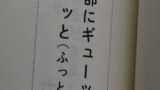 部にギューッ
ッと(ふっと